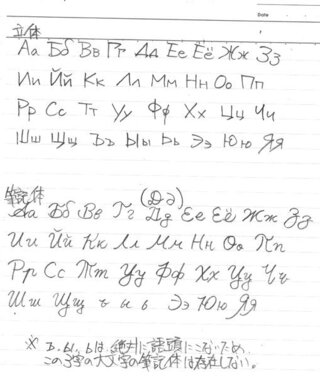 Date
立体
Аа Бб Вв Гг Дд Ее Ёё Жж Зз
Ии Йй Кк Лл Мм Нн Оо Пп
Рр Сс Тт Уу Фф Хх Цц Чч
Шш Щщ Ъъ Ыы Ьь Ээ Юю Яя
筆記体
(Д д)
Аа Бб Вв Гг Дд Ее Ёё Жж Зз
Ии Йй Кк Лл Мм Нн Оо Пп
Рр Сс Тт Уу Фф Хх Цц Чч
Шш Щщ ъ ы ь Ээ Юю Яя
※ ъ, ы, ьは絶対に語頭にこないため、
この3字の大文字の筆記体は存在しない。